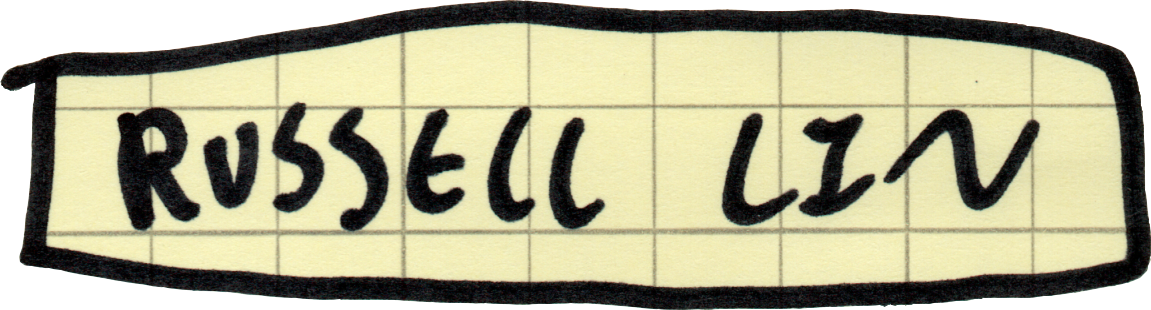 RUSSELL LIN